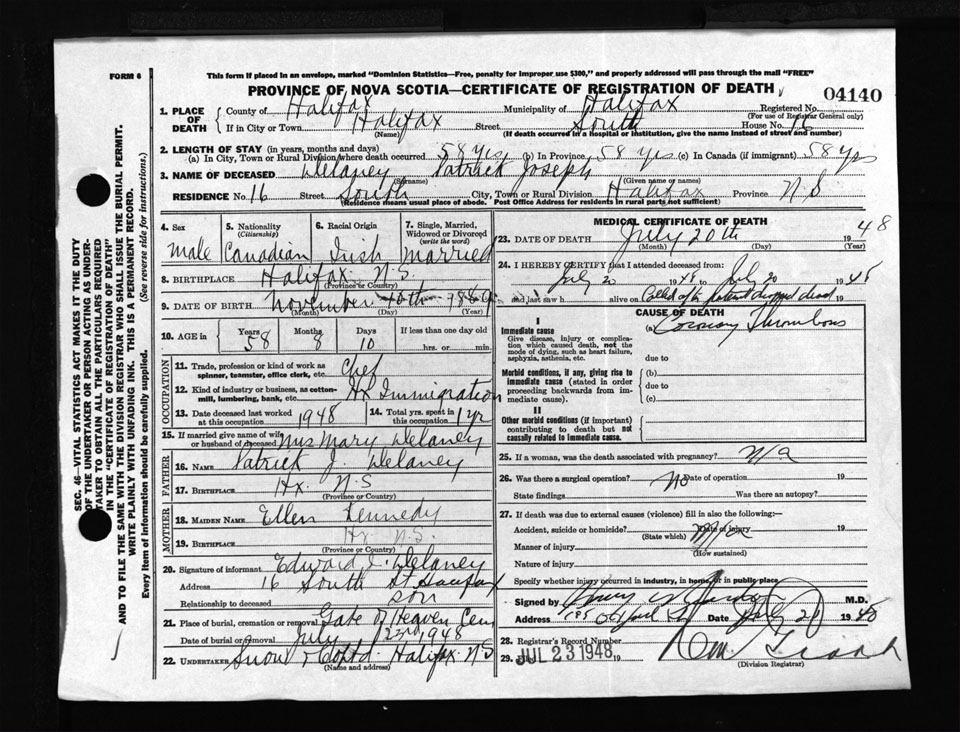 FORM 6
This form if placed in an envelope, marked "Dominion Statistics—Free, penalty for improper use $300," and properly addressed will pass through the mail "FREE"
PROVINCE OF NOVA SCOTIA—CERTIFICATE OF REGISTRATION OF DEATH
04140
1. PLACE OF DEATH
County of Halifax Municipality of Halifax Registered No.
(For use of Registrar General only)
If in City or Town Halifax Street South House No. 16
(Name) (If death occurred in a hospital or institution, give the name instead of street and number)
2. LENGTH OF STAY (in years, months and days)
(a) In City, Town or Rural Division where death occurred 58 yrs (b) In Province 58 yrs (c) In Canada (if immigrant) 58 yrs
3. NAME OF DECEASED Delaney Patrick Joseph
(Surname) (Given name or names)
RESIDENCE No. 16 Street South City, Town or Rural Division Halifax Province N S
(Residence means usual place of abode. Post Office Address for residents in rural parts not sufficient)
4. Sex 5. Nationality (Citizenship) 6. Racial Origin 7. Single, Married, Widowed or Divorced (write the word)
Male Canadian Irish Married
8. BIRTHPLACE Halifax N.S.
(Province or Country)
9. DATE OF BIRTH November 10th 1889
(Month) (Day) (Year)
10. AGE in Years Months Days If less than one day old
58 8 10 hrs. or min.
OCCUPATION
11. Trade, profession or kind of work as spinner, teamster, office clerk, etc. Chef
12. Kind of industry or business, as cotton-mill, lumbering, bank, etc. Hx Immigration
13. Date deceased last worked at this occupation 1948 14. Total yrs. spent in this occupation 1 yr
15. If married give name of wife or husband of deceased Mrs Mary Delaney
FATHER
16. NAME Patrick J. Delaney
17. BIRTHPLACE Hx. N.S
(Province or Country)
MOTHER
18. MAIDEN NAME Ellen Kennedy
19. BIRTHPLACE Hx N.S.
(Province or Country)
20. Signature of informant Edward J. Delaney
Address 16 South St Halifax
Relationship to deceased Son
21. Place of burial, cremation or removal Gate of Heaven Cem
Date of burial or removal July 23rd 1948
22. UNDERTAKER Snow & Co Ltd. Halifax N S
MEDICAL CERTIFICATE OF DEATH
23. DATE OF DEATH July 20th 1948
(Month) (Day) (Year)
24. I HEREBY CERTIFY that I attended deceased from:
July 20 1948 to July 20 1948
and last saw h alive on 19
CAUSE OF DEATH
I
Immediate cause (a) Coronary Thrombosis
Give disease, injury or complication which caused death, not the mode of dying, such as heart failure, asphyxia, asthenia, etc.
due to
Morbid conditions, if any, giving rise to immediate cause (stated in order proceeding backwards from immediate cause).
(b)
due to
(c)
II
Other morbid conditions (if important) contributing to death but not causally related to immediate cause.
25. If a woman, was the death associated with pregnancy? N/a
26. Was there a surgical operation? No Date of operation 19
State findings Was there an autopsy?
27. If death was due to external causes (violence) fill in also the following:—
Accident, suicide or homicide? Date of injury 19
(State which)
Manner of injury
(How sustained)
Nature of injury
Specify whether injury occurred in industry, in home, or in public place
Signed by M.D.
Address Date July 21 1948
28. Registrar's Record Number
29. JUL 23 1948 19
(Division Registrar)
SEC. 46—VITAL STATISTICS ACT MAKES IT THE DUTY
OF THE UNDERTAKER OR PERSON ACTING AS UNDERTAKER TO OBTAIN ALL THE PARTICULARS REQUIRED
IN THE "CERTIFICATE OF REGISTRATION OF DEATH"
AND TO FILE THE SAME WITH THE DIVISION REGISTRAR WHO SHALL ISSUE THE BURIAL PERMIT.
WRITE PLAINLY WITH UNFADING INK. THIS IS A PERMANENT RECORD.
Every item of information should be carefully supplied. (See reverse side for instructions.)